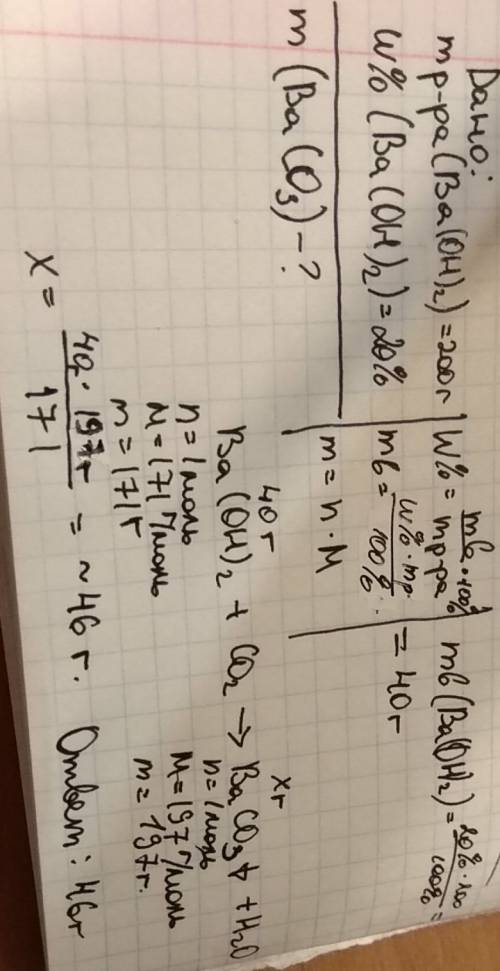 Дано:
m р-ра (Ba(OH)₂) = 200г
W% (Ba(OH)₂) = 20%
m (BaCO₃) - ?
W% = mв · 100% / m р-ра
mв = W% · mр. / 100%
m = n · M
mв (Ba(OH)₂) = 20% · 200 / 100% =
= 40 г
40 г
xг
Ba(OH)₂ + CO₂ → BaCO₃↓ + H₂O
n = 1 моль
n = 1 моль
M = 171 г/моль
M = 197 г/моль
m = 171 г
m = 197 г.
X = 40г · 197г / 171 = ~46 г.
Ответ: 46г